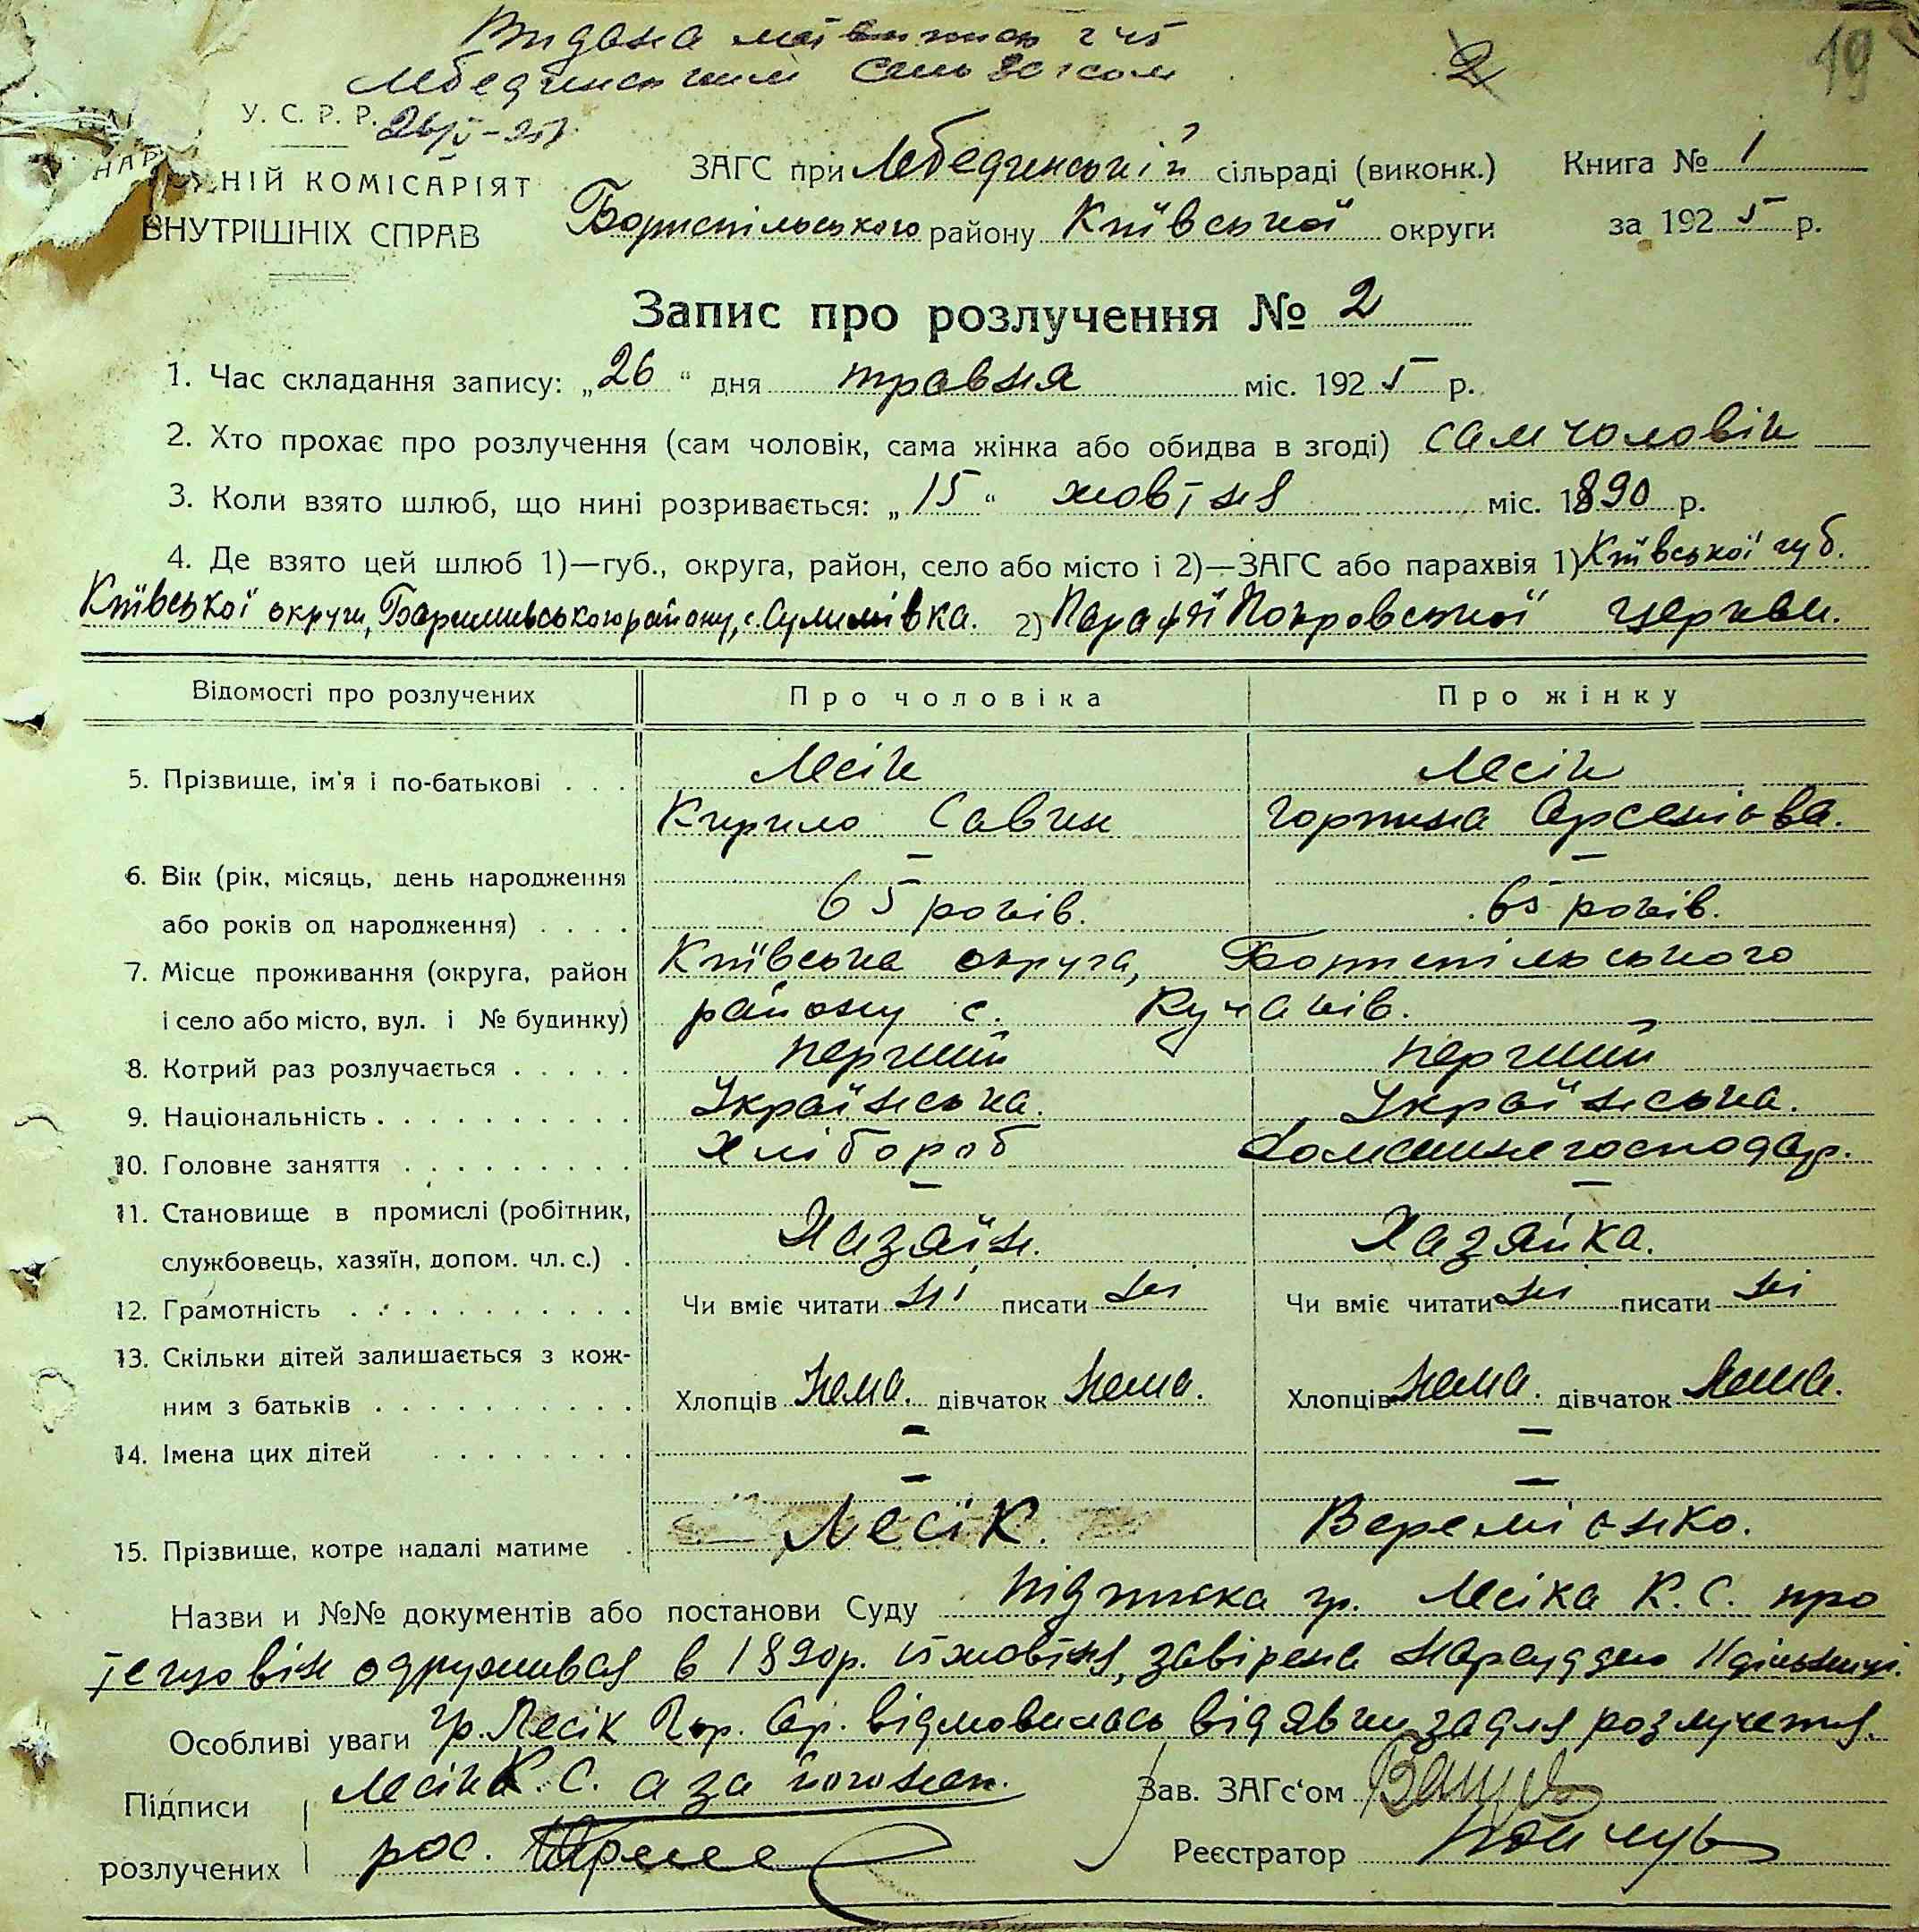 Видана
2 19
Лебединським Сель
У. С. Р. Р. 26/V-25р.
НАРОДНІЙ КОМІСАРІЯТ
ВНУТРІШНІХ СПРАВ
ЗАГС при Лебединській сільраді (виконк.) Книга № 1
Бориспільського району Київської округи за 1925 р.
Запис про розлучення № 2
1. Час складання запису: „26“ дня травня міс. 1925 р.
2. Хто прохає про розлучення (сам чоловік, сама жінка або обидва в згоді) сам чоловік
3. Коли взято шлюб, що нині розривається: „15“ жовтня міс. 1890 р.
4. Де взято цей шлюб 1)—губ., округа, район, село або місто і 2)—ЗАГС або парахвія 1) Київської губ.
Київської округи, Баришивського району, с. Сулимівка. 2) Парафії Покровської церкви.
Відомості про розлучених Про чоловіка Про жінку
5. Прізвище, ім'я і по-батькові . . . Лесік Лесік
Кирило Савин Горпина Арсенієва.
6. Вік (рік, місяць, день народження — —
або років од народження) . . . . 65 років. 65 років.
7. Місце проживання (округа, район Київська округа, Бориспільського
і село або місто, вул. і № будинку) району с. Кучаків.
8. Котрий раз розлучається . . . . . перший перший
9. Національність . . . . . . . . . . Українська. Українська.
10. Головне заняття . . . . . . . . . Хлібороб Домашнє господар.
11. Становище в промислі (робітник, — —
службовець, хазяїн, допом. чл. с.) . Хазяїн. Хазяйка.
12. Грамотність . . . . . . . . . . . Чи вміє читати ні писати ні Чи вміє читати ні писати ні
13. Скільки дітей залишається з кож-
ним з батьків . . . . . . . . . . Хлопців Нема. дівчаток Нема. Хлопців Нема. дівчаток Нема.
14. Імена цих дітей . . . . . . . . — —
— —
15. Прізвище, котре надалі матиме . Лесік. Веремієнко.
Назви и №№ документів або постанови Суду підписка гр. Лесіка К. С. про
те що він одружився в 1890р. 15 жовтня, завірена Нарсуддею 11 дільниці.
Особливі уваги гр. Лесік Гор. Ар. відмовилась від явки задля розлучення.
Підписи Лесік К. С. а за його неп. Зав. ЗАГс'ом
розлучених рос. Реєстратор